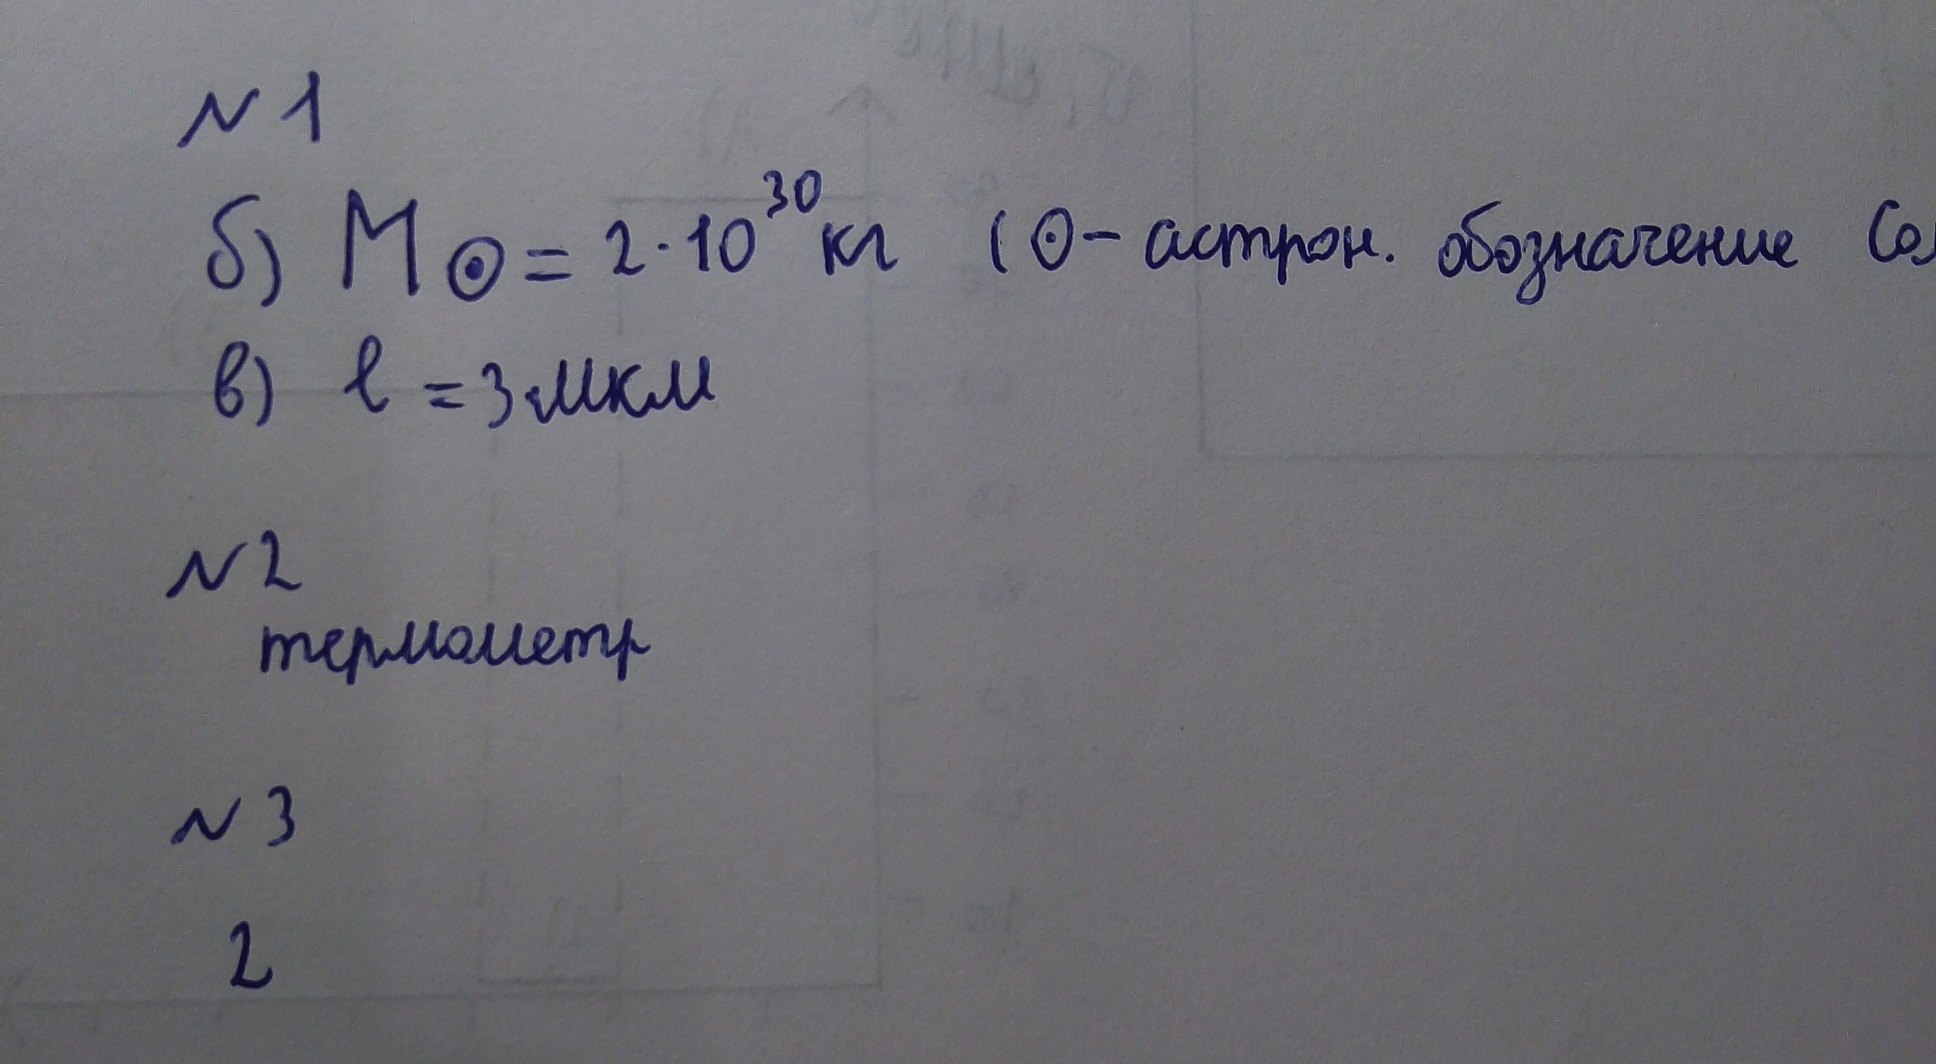 № 1
б) M☉ = 2·10³⁰ кг (☉ - астрон. обозначение
в) l = 3 мкм
№ 2
термометр
№ 3
2